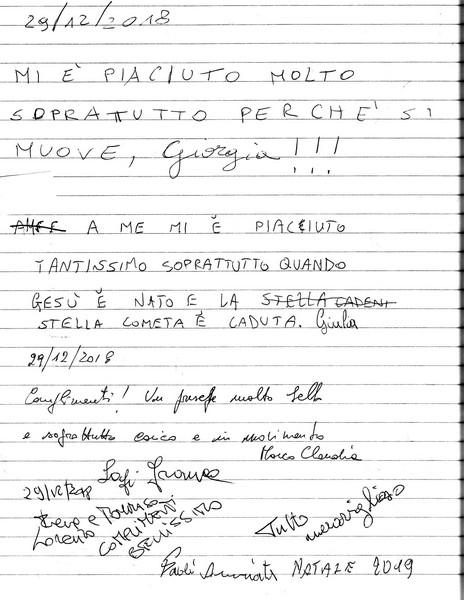 29/12/2018
MI È PIACIUTO MOLTO
SOPRATTUTTO PERCHE' SI
MUOVE, Giorgia!!!
A ME MI È PIACIUTO
TANTISSIMO SOPRATTUTTO QUANDO
GESÙ È NATO E LA STELLA CADENT
STELLA COMETA È CADUTA. Giulia
29/12/2018
Complimenti! Un presepe molto bello
e soprattutto unico e in movimento
Marco Claudia
29/12/2018
Lorenzo
COMPLIMENTI
BELLISSIMO
Tutto
meraviglioso
NATALE 2019